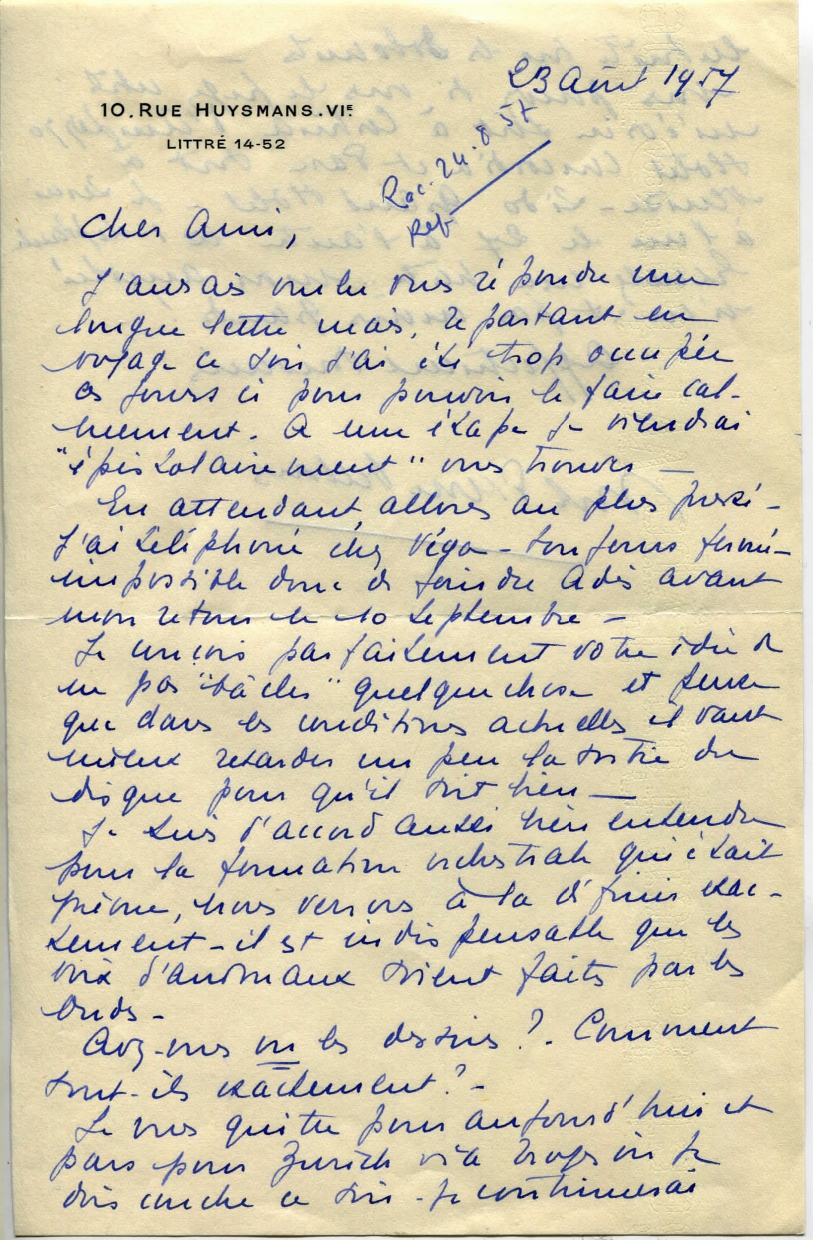 23 Août 1957
10, RUE HUYSMANS. VIE
LITTRÉ 14-52
Rec. 24.8.57
Rep
Cher Ami,
J'aurais voulu vous répondre une
longue lettre mais, repartant en
voyage ce soir j'ai été trop occupée
ces jours ci pour pouvoir le faire cal-
mement. A une étape je viendrai
"épistolairement" vous trouver —
En attendant allons au plus pressé -
J'ai téléphoné chez Véga - toujours fermé -
impossible donc de joindre Adès avant
mon retour le 10 septembre -
Je conçois parfaitement votre idée de
ne pas "bâcler" quelque chose et pense
que dans les conditions actuelles il vaut
mieux retarder un peu la sortie du
disque pour qu'il soit bien —
Je suis d'accord aussi bien entendu
pour la formation orchestrale qui était
prévue, nous verrons à la définir exac-
tement - il est indispensable que les
voix d'animaux soient faits par les
Ondes -
Avez-vous vu les dessins ?. Comment
sont-ils exactement ? -
Je vous quitte pour aujourd'hui et
pars pour Zurich via Troyes où je
dois couche ce soir - Je continuerai